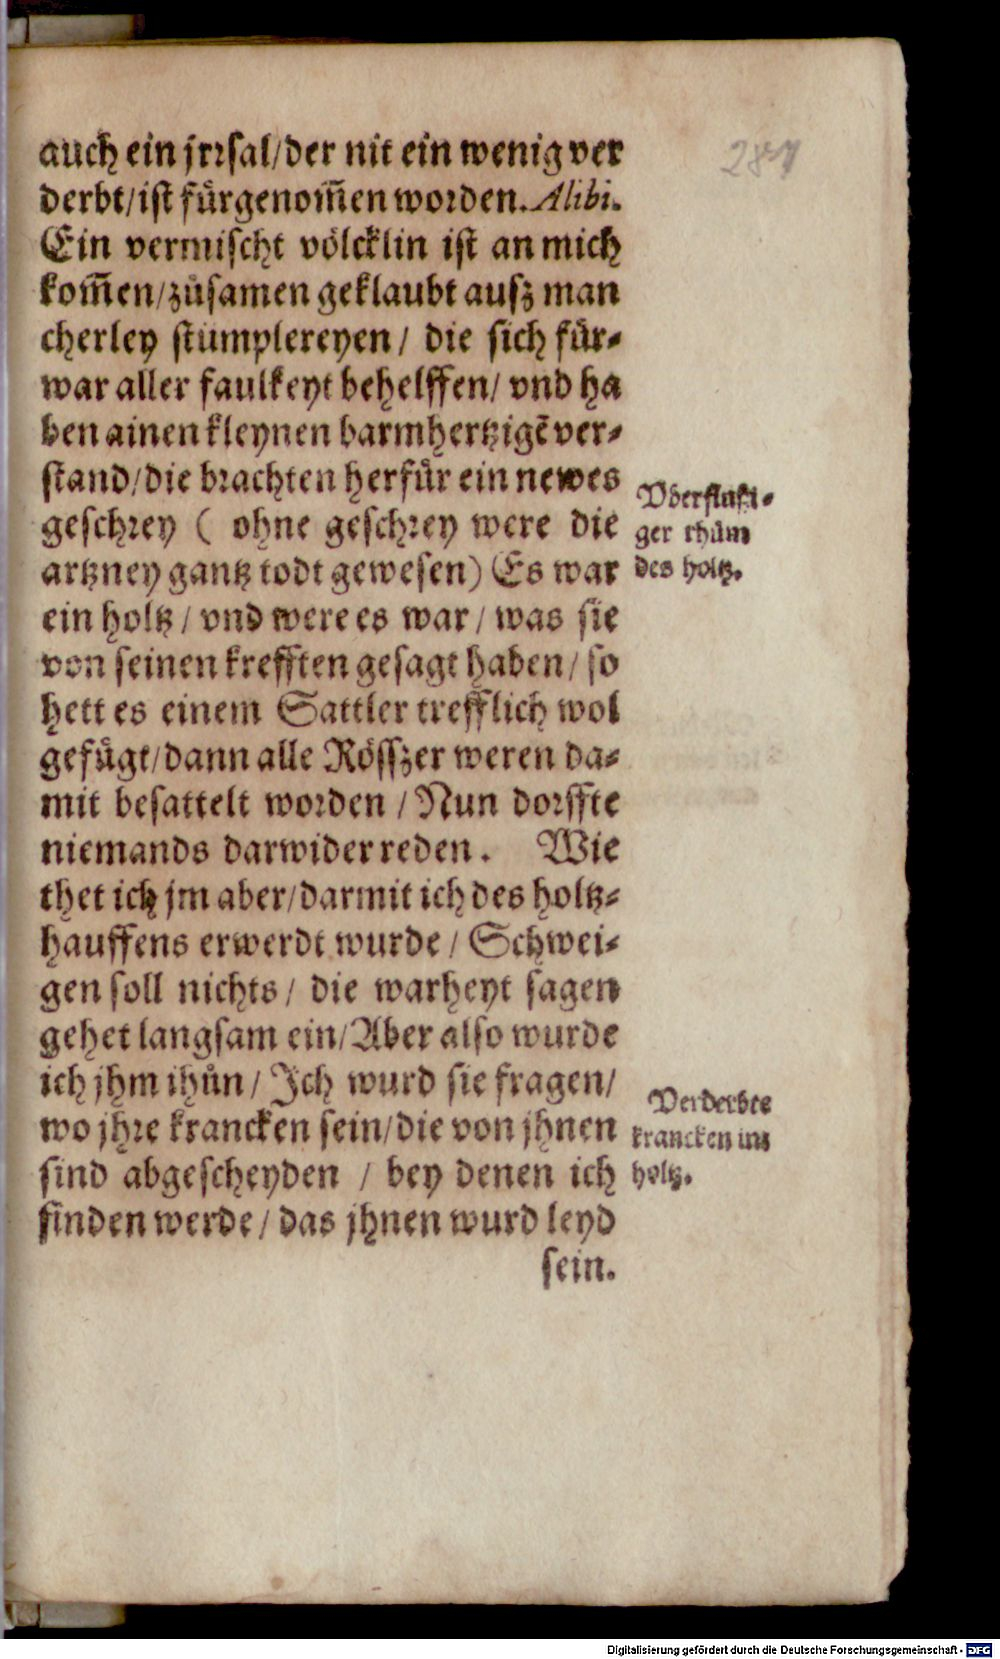 287
auch ein jrrsal/der nit ein wenig ver
derbt/ist fürgenom̄en worden. Alibi.
Ein vermischt völcklin ist an mich
kom̄en/zůsamen geklaubt ausz man
cherley stümplereyen/ die sich für-
war aller faulkeyt behelffen/ vnd ha
ben ainen kleynen barmhertzigē ver-
stand/die brachten herfür ein newes
geschrey ( ohne geschrey were die
artzney gantz todt gewesen) Es war
ein holtz/ vnd were es war/ was sie
von seinen krefften gesagt haben/ so
hett es einem Sattler trefflich wol
gefügt/dann alle Rösszer weren da-
mit besattelt worden/ Nun dorffte
niemands darwider reden. Wie
thet ich jm aber/darmit ich des holtz-
hauffens erwerdt wurde/ Schwei-
gen soll nichts/ die warheyt sagen
gehet langsam ein/Aber also wurde
ich jhm thůn/ Jch wurd sie fragen/
wo jhre krancken sein/die von jhnen
sind abgescheyden / bey denen ich
finden werde/ das jhnen wurd leyd
sein.
Vberflüssi-
ger rhům
des holtz.
Verderbte
krancken im
holtz.
Digitalisierung gefördert durch die Deutsche Forschungsgemeinschaft - DFG